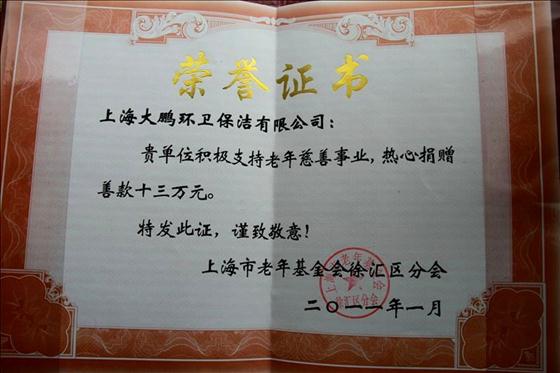 荣誉证书
上海大鹏环卫保洁有限公司：
贵单位积极支持老年慈善事业，热心捐赠
善款十三万元。
特发此证，谨致敬意！
上海市老年基金会徐汇区分会
二〇一一年一月
上海市老年基金会
徐汇区分会